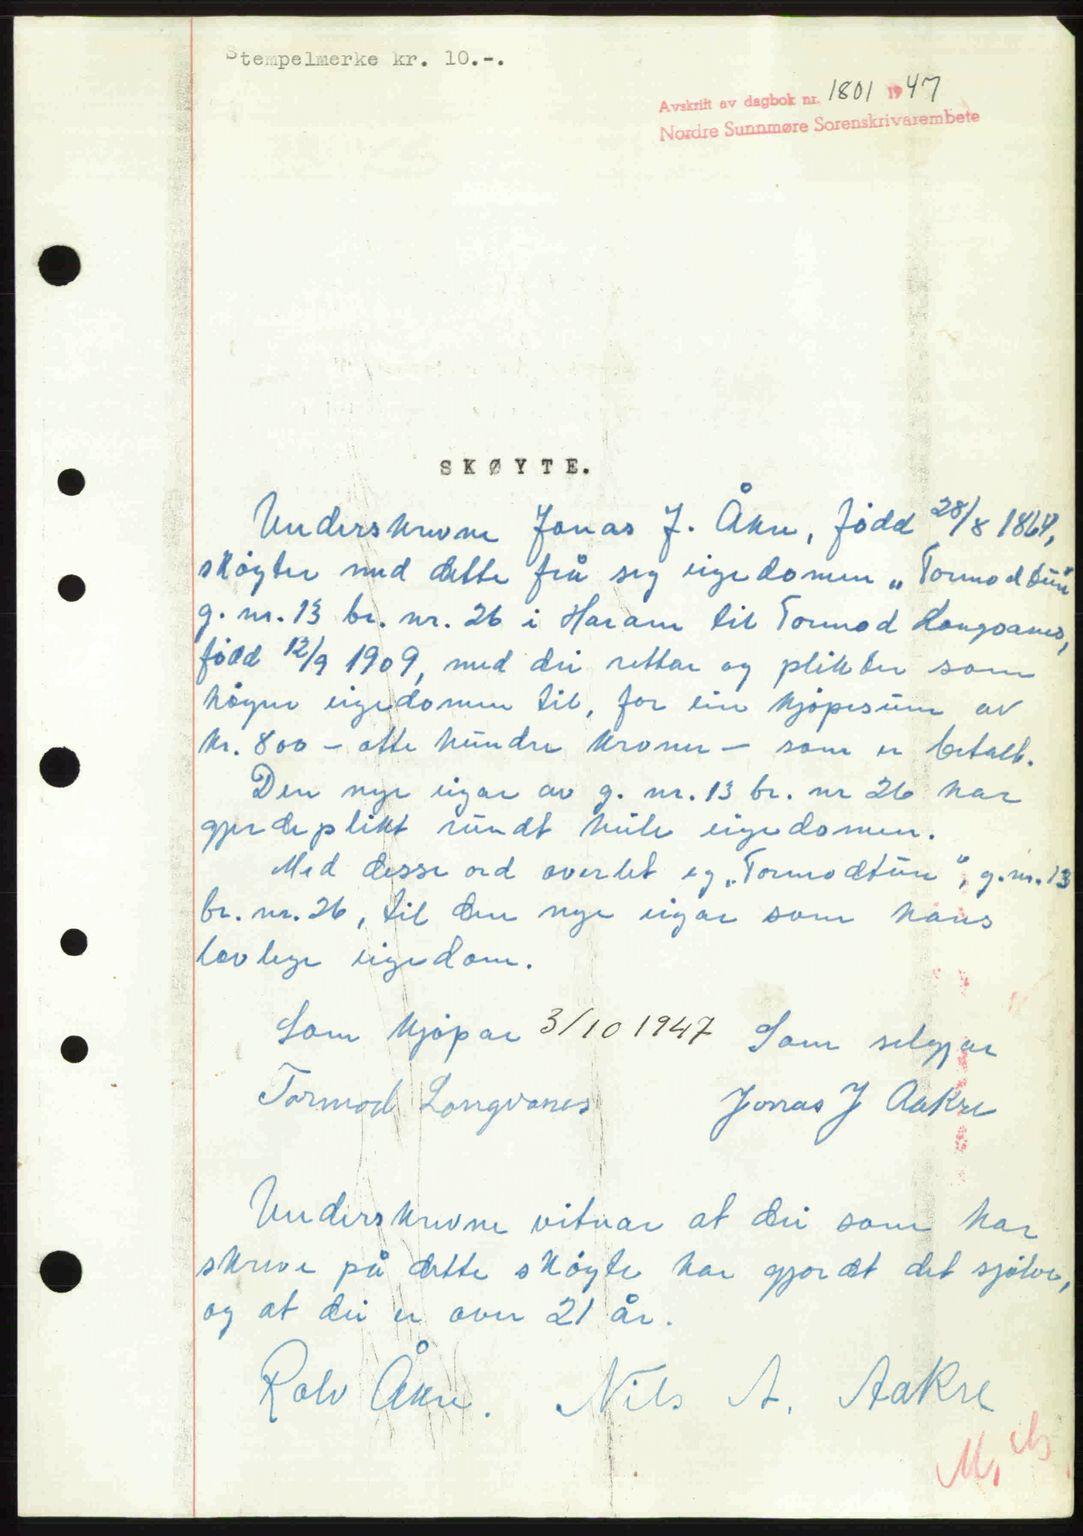 Stempelmerke kr. 10.-.
Avskrift av dagbok nr. 1801 1947
Nordre Sunnmøre Sorenskrivarembete
SKØYTE.
Underskrivne Jonas J. Åkre, fødd 28/8 1864,
skøyter med dette frå seg eigedomen „Tormodtun"
g. nr. 13 br. nr. 26 i Haram til Tormod Longvanes,
fødd 12/9 1909, med dei rettar og plikter som
høyrer eigedomen til, for ein kjøpesum av
kr. 800 – åtte hundre kroner – som er betalt.
Den nye eigar av g. nr. 13 br. nr 26 har
gjerdeplikt rundt heile eigedomen.
Med desse ord overlet eg „Tormodtun", g. nr. 13
br. nr. 26, til den nye eigar som hans
lovlege eigedom.
Som kjøpar 3/10 1947 Som seljar
Tormod Longvanes Jonas J Aakre
Underskrivne vitnar at dei som har
skrive på dette skøyte har gjordt det sjølve,
og at dei er over 21 år.
Rolv Åkre. Nils A. Aakre